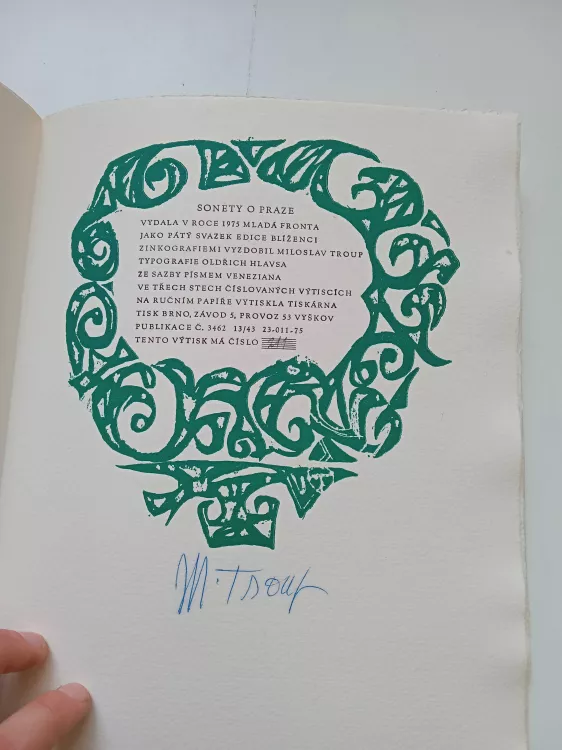 SONETY O PRAZE
VYDALA V ROCE 1975 MLADÁ FRONTA
JAKO PÁTÝ SVAZEK EDICE BLÍŽENCI
ZINKOGRAFIEMI VYZDOBIL MILOSLAV TROUP
TYPOGRAFIE OLDŘICH HLAVSA
ZE SAZBY PÍSMEM VENEZIANA
VE TŘECH STECH ČÍSLOVANÝCH VÝTISCÍCH
NA RUČNÍM PAPÍŘE VYTISKLA TISKÁRNA
TISK BRNO, ZÁVOD 5, PROVOZ 53 VYŠKOV
PUBLIKACE Č. 3462 13/43 23-011-75
TENTO VÝTISK MÁ ČÍSLO
M. Troup